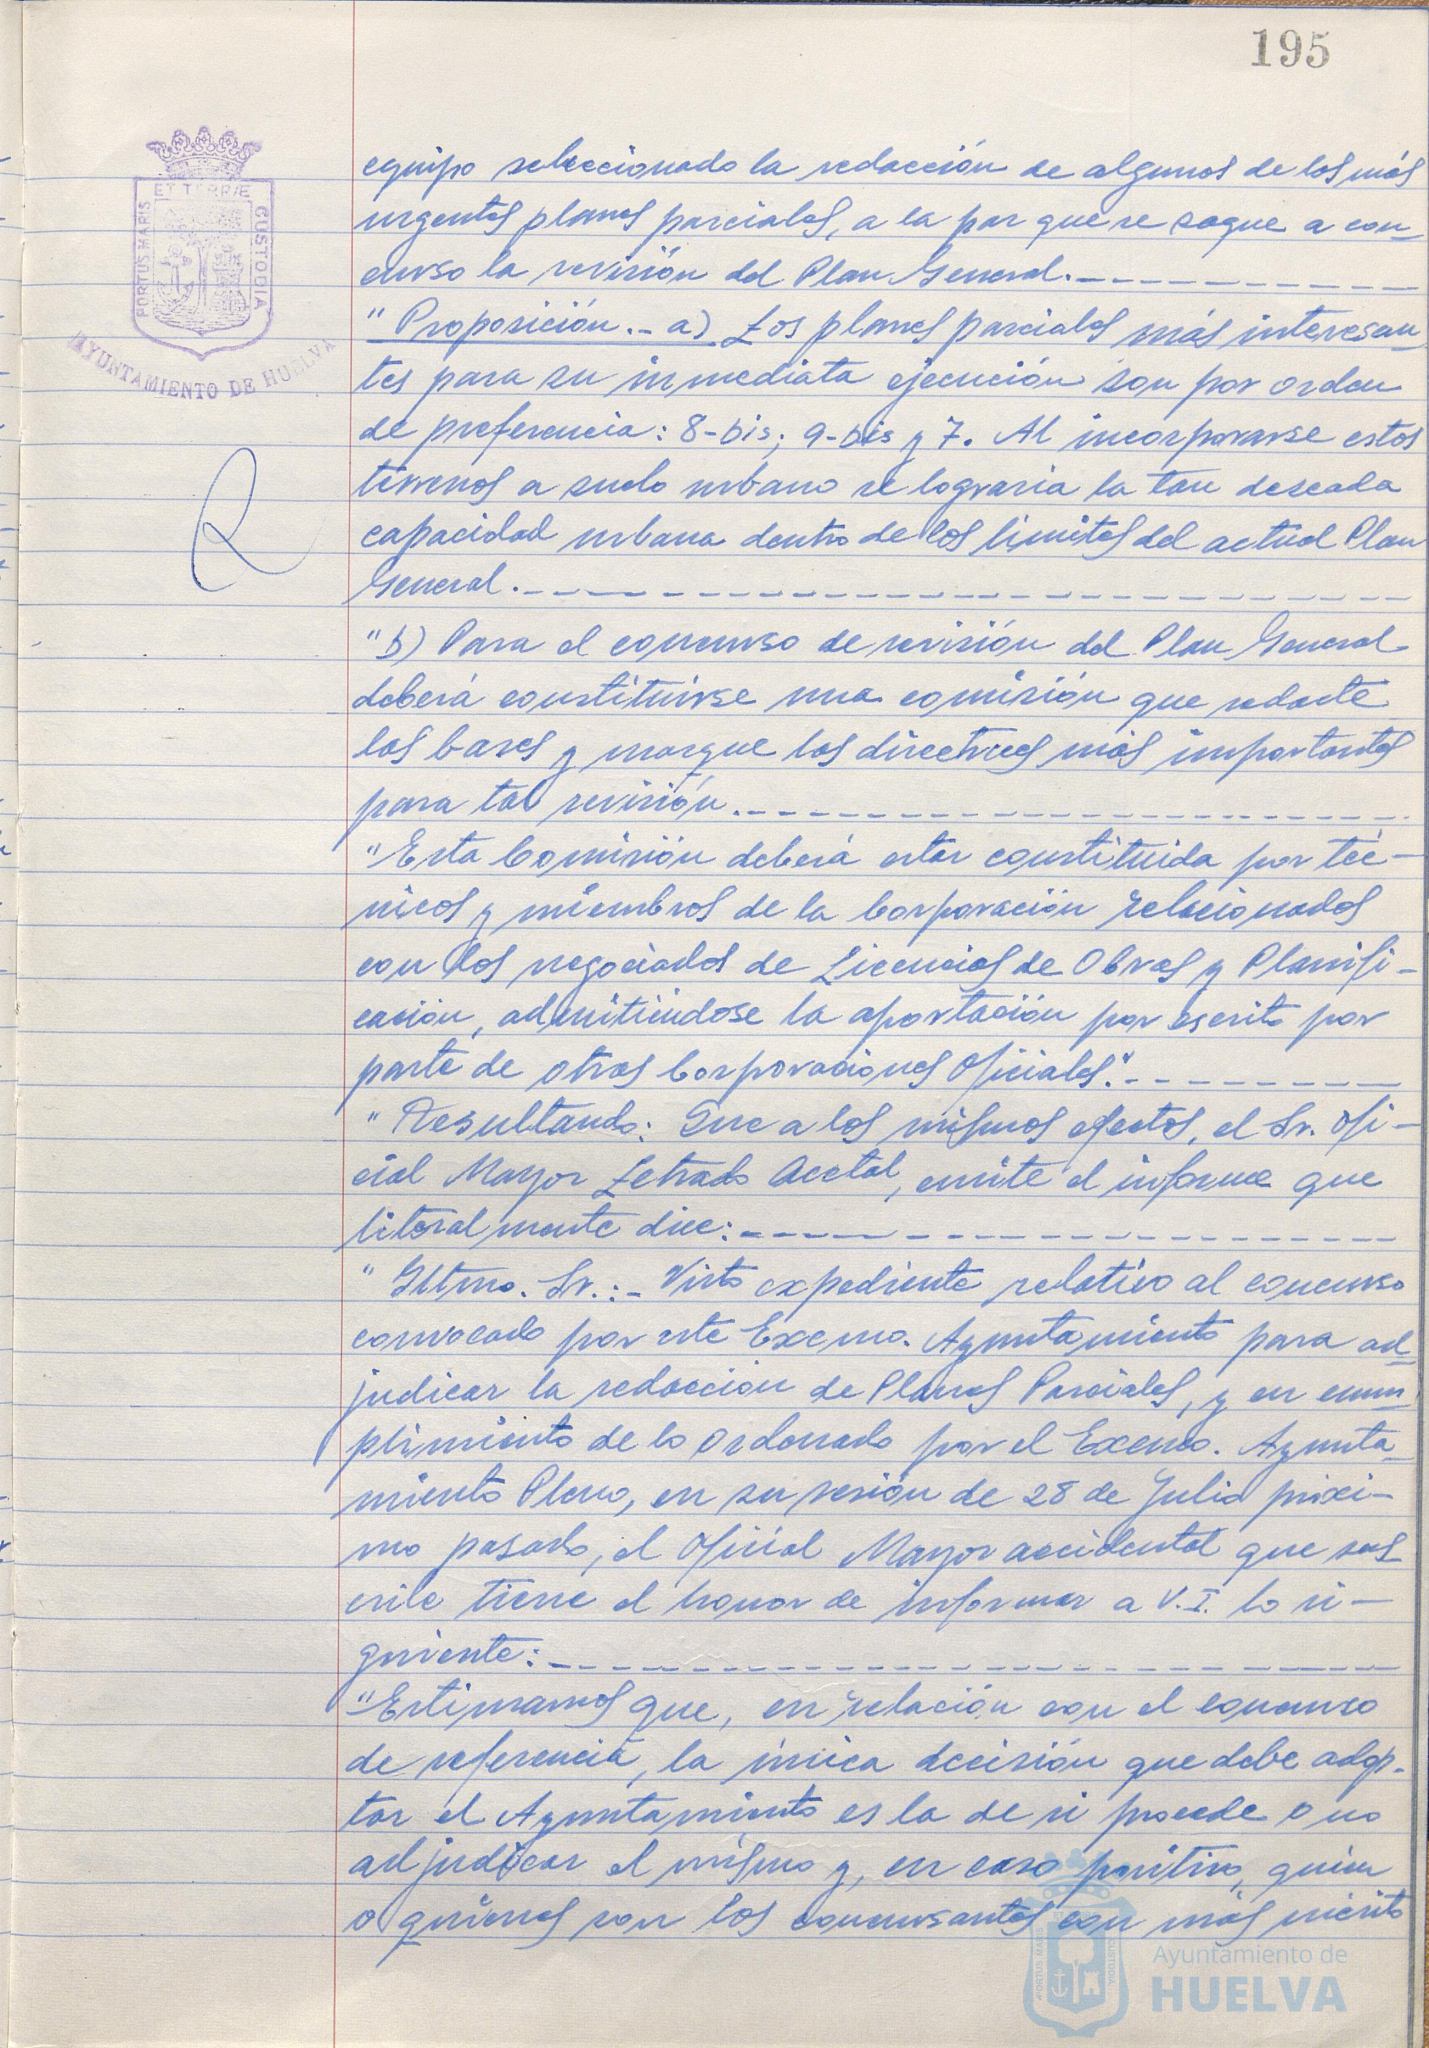 195
ET TERRÆ
PORTUS MARIS
CUSTODIA
AYUNTAMIENTO DE HUELVA
equipo seleccionado la redacción de algunos de los más
urgentes planes parciales, a la par que se saque a con-
curso la revisión del Plan General.
"Proposición.- a) Los planes parciales más interesan-
tes para su inmediata ejecución son por orden
de preferencia: 8-bis; 9-bis y 7. Al incorporarse estos
terrenos a suelo urbano se lograría la tan deseada
capacidad urbana dentro de los límites del actual Plan
General.
"b) Para el concurso de revisión del Plan General
deberá constituirse una comisión que redacte
las bases y marque las directrices más importantes
para tal revisión.
"Esta Comisión deberá estar constituida por téc-
nicos y miembros de la Corporación relacionados
con los negociados de Licencias de Obras y Planifi-
cación, admitiéndose la aportación por escrito por
parte de otras Corporaciones Oficiales."
"Resultando: Que a los mismos efectos, el Sr. Ofi-
cial Mayor Letrado Acctal, emite el informe que
literalmente dice:
"Iltmo. Sr.:- Visto expediente relativo al concurso
convocado por este Excmo. Ayuntamiento para ad-
judicar la redacción de Planes Parciales, y en cum-
plimiento de lo ordenado por el Excmo. Ayunta-
miento Pleno, en su sesión de 28 de Julio próxi-
mo pasado, el Oficial Mayor accidental que sus-
cribe tiene el honor de informar a V.I. lo si-
guiente:
"Estimamos que, en relación con el concurso
de referencia, la única decisión que debe adop-
tar el Ayuntamiento es la de si procede o no
adjudicar el mismo y, en caso positivo, quien
o quienes son los concursantes con más mérito
Ayuntamiento de
HUELVA